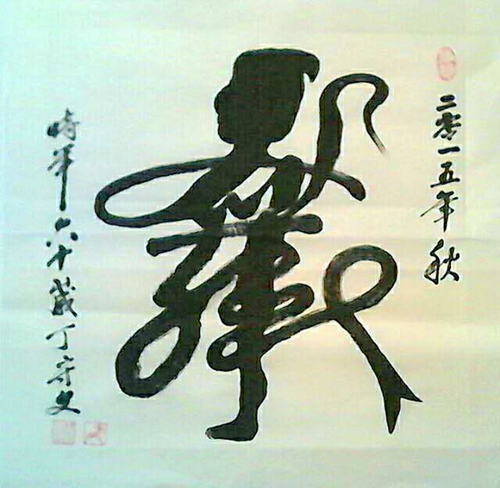 二零一五年秋
時年六十歲丁守文